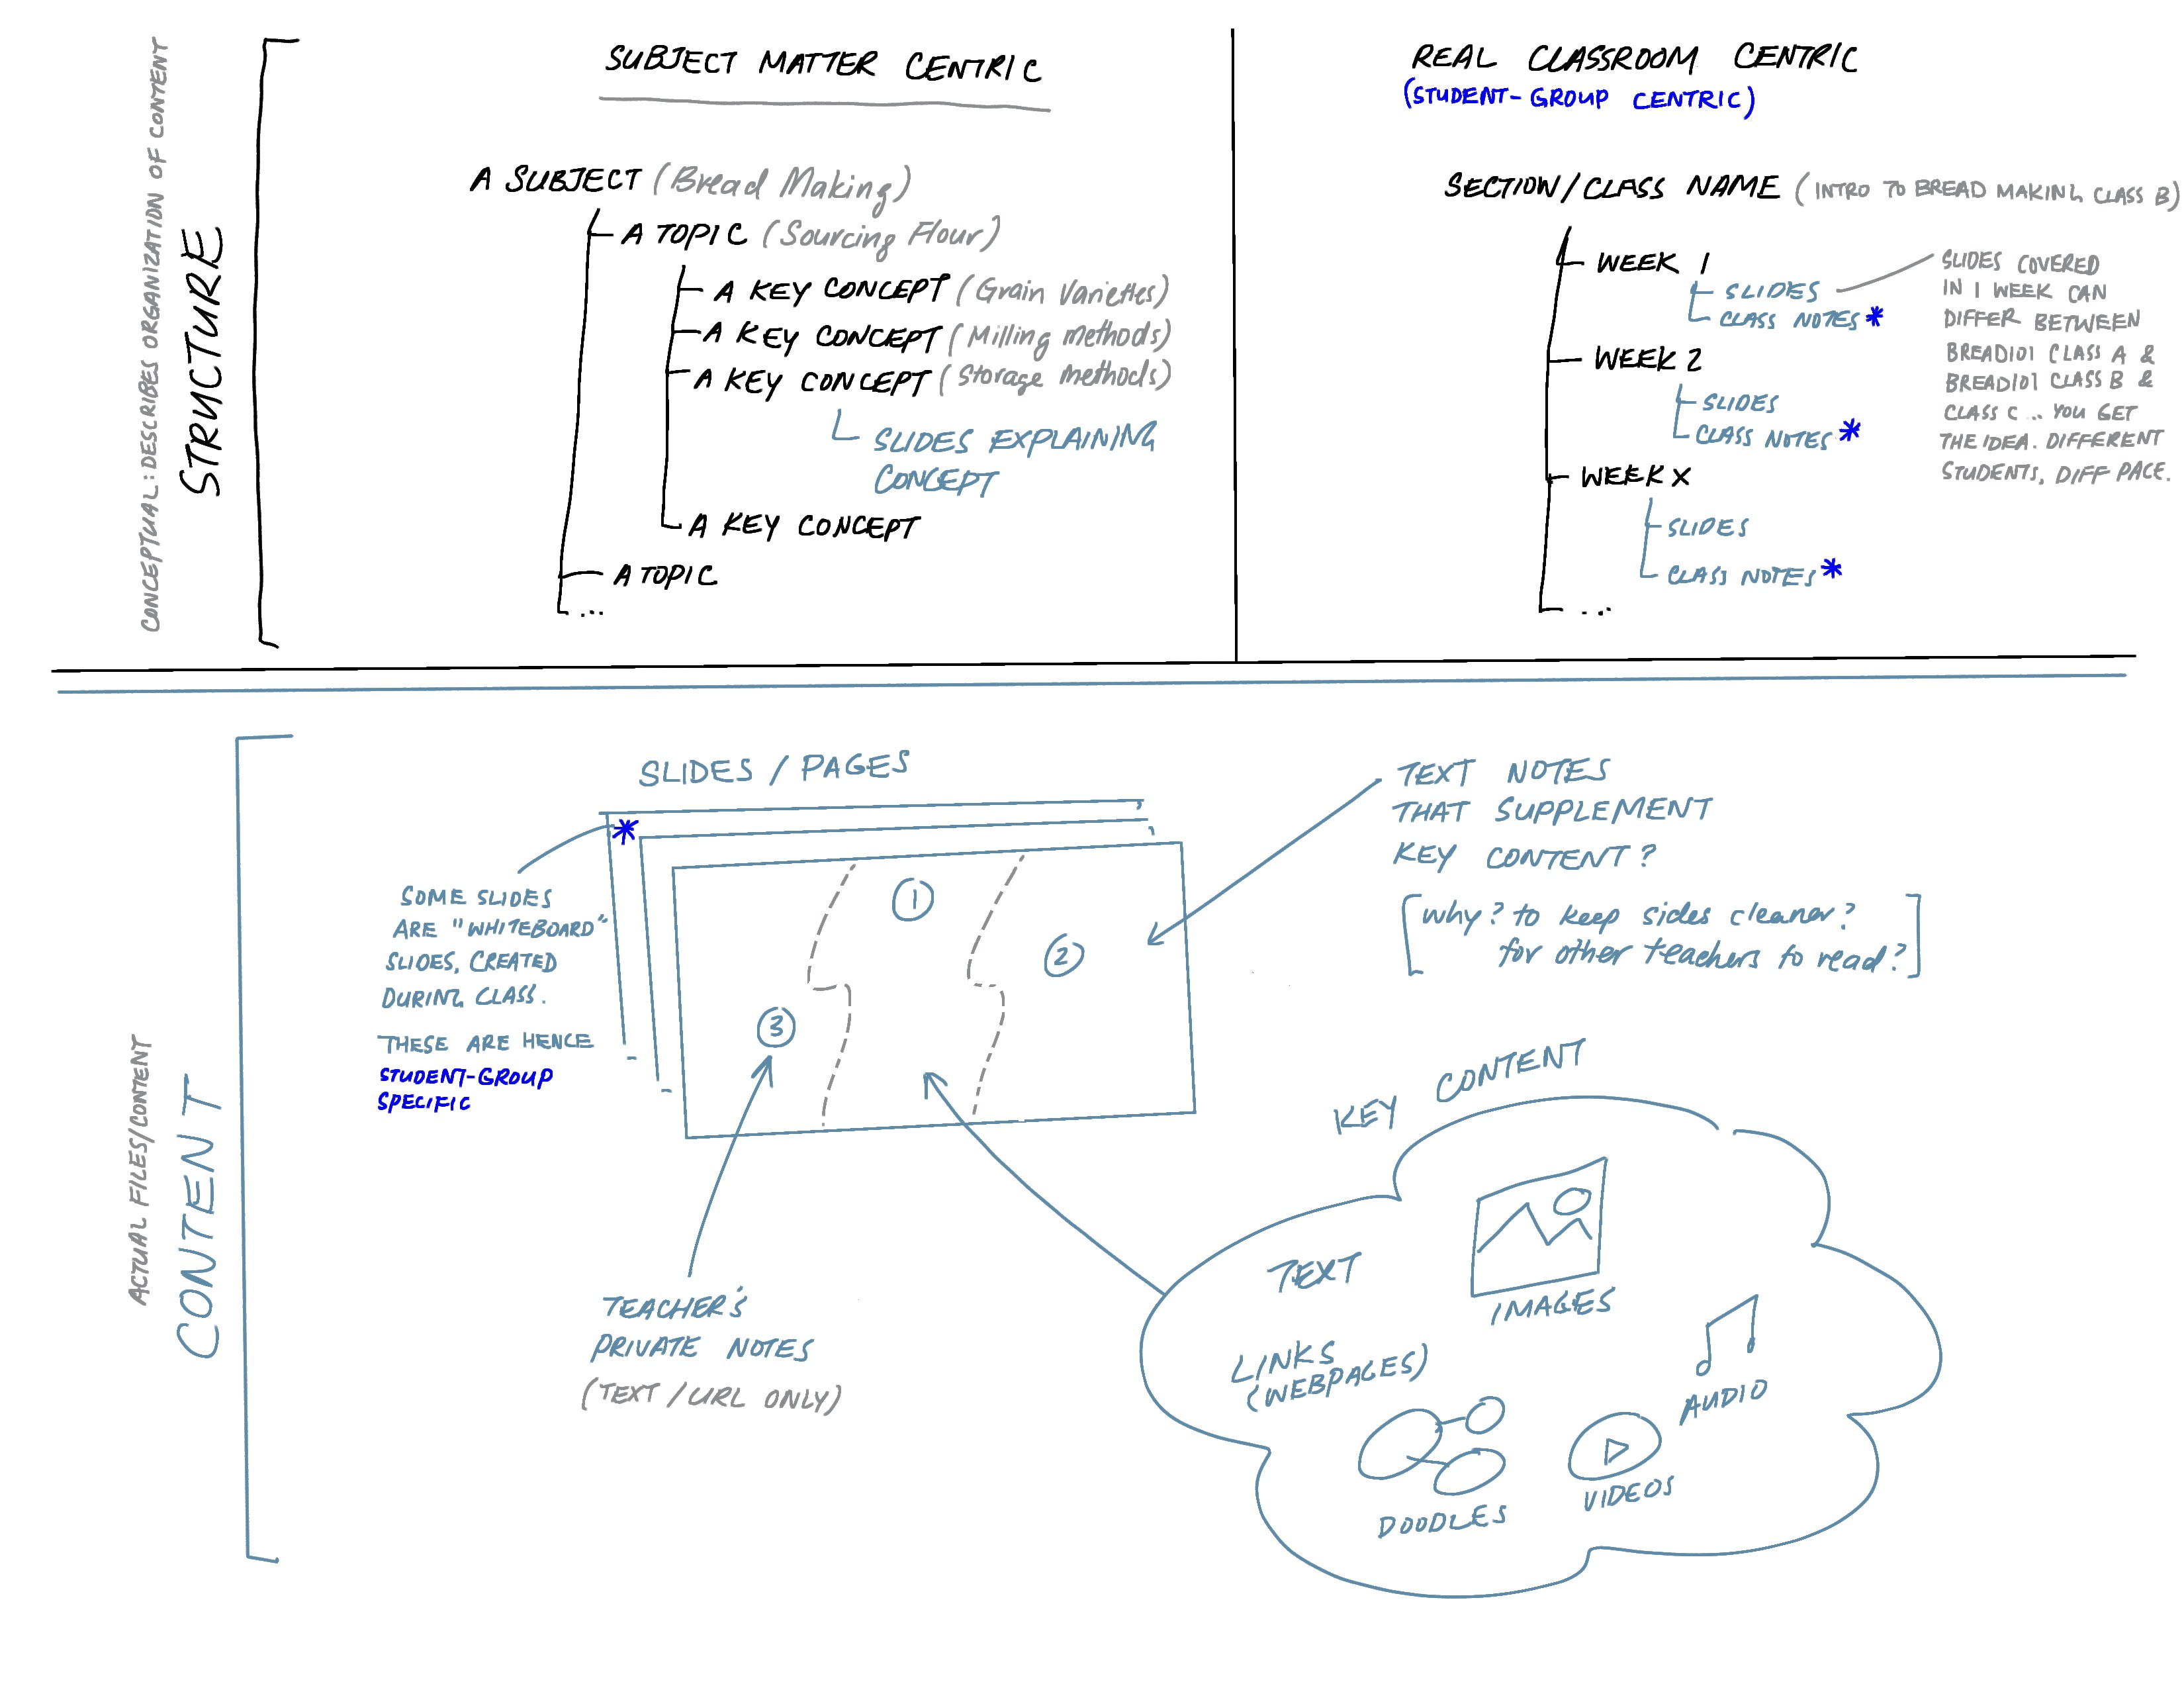 CONCEPTUAL: DESCRIBES ORGANIZATION OF CONTENT
STRUCTURE
SUBJECT MATTER CENTRIC
A SUBJECT (Bread Making)
A TOPIC (Sourcing Flour)
A KEY CONCEPT (Grain Varieties)
A KEY CONCEPT (Milling Methods)
A KEY CONCEPT (Storage Methods)
SLIDES EXPLAINING
CONCEPT
A KEY CONCEPT
A TOPIC
...
REAL CLASSROOM CENTRIC
(STUDENT-GROUP CENTRIC)
SECTION/CLASS NAME (INTRO TO BREAD MAKING CLASS B)
WEEK 1
SLIDES
CLASS NOTES *
WEEK 2
SLIDES
CLASS NOTES *
WEEK X
SLIDES
CLASS NOTES *
...
SLIDES COVERED
IN 1 WEEK CAN
DIFFER BETWEEN
BREAD101 CLASS A &
BREAD101 CLASS B &
CLASS C .. YOU GET
THE IDEA. DIFFERENT
STUDENTS, DIFF PACE.
ACTUAL FILES/CONTENT
CONTENT
SLIDES / PAGES
*
SOME SLIDES
ARE "WHITEBOARD"
SLIDES, CREATED
DURING CLASS.
THESE ARE HENCE
STUDENT-GROUP
SPECIFIC
1
2
3
TEXT NOTES
THAT SUPPLEMENT
KEY CONTENT?
[why? to keep sides cleaner?
for other teachers to read?]
TEACHER'S
PRIVATE NOTES
(TEXT/URL ONLY)
KEY CONTENT
TEXT
IMAGES
LINKS
(WEBPAGES)
AUDIO
DOODLES
VIDEOS